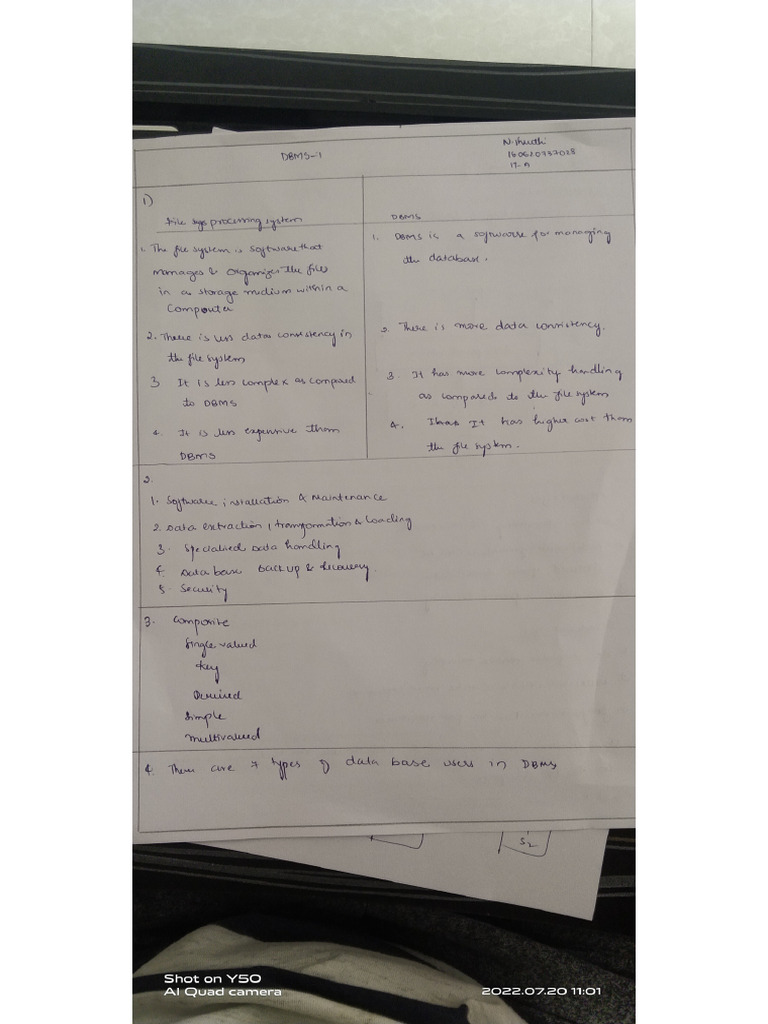 DBMS-1
N. Shruthi
17-A
1)
File sys processing system
DBMS
1. The file system is software that
manages & organizes the files
in a storage medium within a
Computer
1. DBMS is a software for managing
the database.
2. There is less data consistency in
the file system
2. There is more data consistency.
3 It is less complex as compared
to DBMS
3. It has more complexity handling
as compared to the file system
4. It is less expensive than
DBMS
4. It has higher cost than
the file system.
2.
1. Software installation & Maintenance
2. Data extraction, transformation & Loading
3. Specialised Data handling
4. Data base backup & recovery.
5. Security
3. Composite
Single valued
Key
Derived
Simple
Multivalued
4. There are 7 types of data base users in DBMS
S2
Shot on Y50
AI Quad camera
2022.07.20 11:01